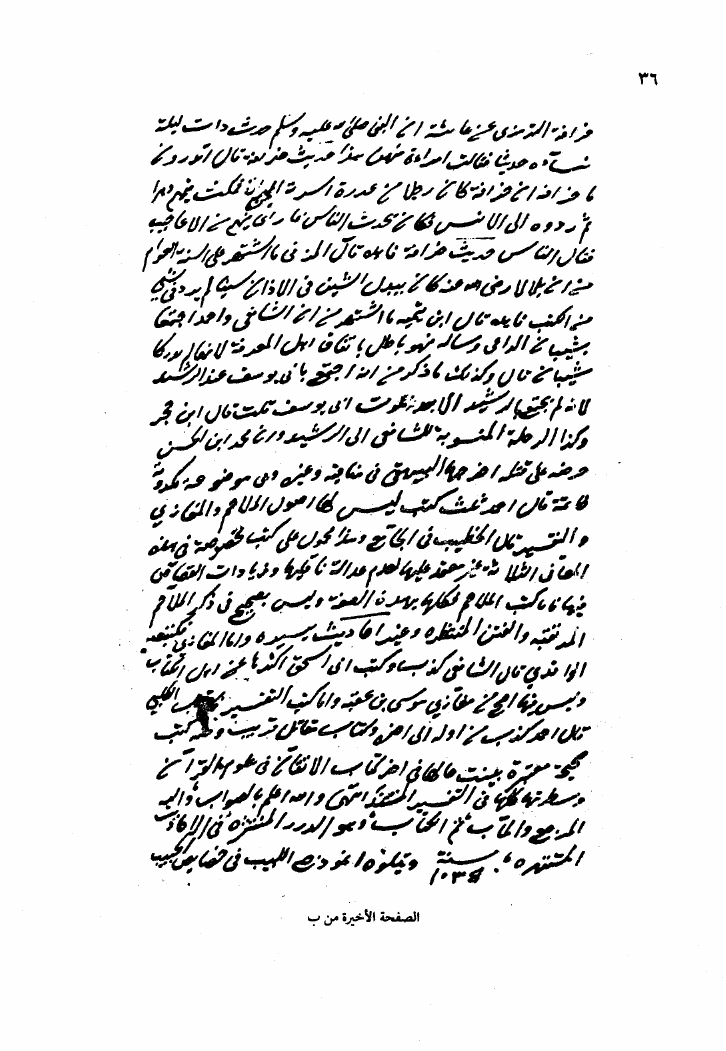 ٣٦
خرافة الترمذي عن عائشة ان النبي صلى الله عليه وسلم حدث ذات ليلة
نساءه حديثا فقالت امراة منهن هذا حديث خرافة قال اتدرون
ما خرافة ان خرافة كان رجلا من عذرة اسرته الجن فمكث فيهم دهرا
ثم ردوه الى الانس فكان يحدث الناس بما راى فيهم من الاعاجيب
فقال الناس حديث خرافة
من ان بلالا رضي الله عنه كان يبدل الشين في الاذان سينا لم يرد في شي
من الكتب قال ابن تيمية ما اشتهر من ان الشافعي واحمد اجتمعا
بشيبان الراعي وسالاه فهو باطل باتفاق اهل المعرفة لانهما لم يدركا
شيبان قال وكذلك ما ذكر من انه اجتمع بابي يوسف عند الرشيد
لانه لم يجتمع بالرشيد الا بعد موت ابي يوسف قلت قال ابن حجر
وكذا الرحلة المنسوبة للشافعي الى الرشيد وان محمد ابن الحسن
حرضه على قتله اخرجها البيهقي في مناقبه وغيره وهي موضوعة مكذوبة
خاتمة قال احمد ثلاث كتب ليس لها اصول الملاحم والمغازي
والتفسير قال الخطيب في الجامع وهذا محمول على كتب مخصوصة في هذه
المعاني الثلاثة غير معتمد عليها لعدم عدالة ناقليها وزيادات القصاص
فيها فاما كتب الملاحم فكلها بهذه الصفة وليس يصح في ذكر الملاحم
المرتقبة والفتن المنتظرة وغير احاديث يسيرة واما المغازي
الواقدي قال الشافعي كذب وكتب ابن اسحق اكثرها عن اهل الكتاب
وليس فيها اصح من مغازي موسى بن عقبة واما كتب التفسير الكلبي
قال احمد كذب من اوله الى اخره وكتاب مقاتل قريب وفيه كتب
صحيحة معتبرة بينت حالها في اخر كتاب الاتقان في علوم القرآن
وسطرتها كلها في التفسير المسند انتهى والله اعلم بالصواب واليه
المرجع والمآب تم الكتاب وهو الدرر المنتثرة في الاحاديث
المشتهرة سنة ١٠٣٤ ويتلوه انموذج اللبيب في خصايص الحبيب
الصفحة الأخيرة من ب